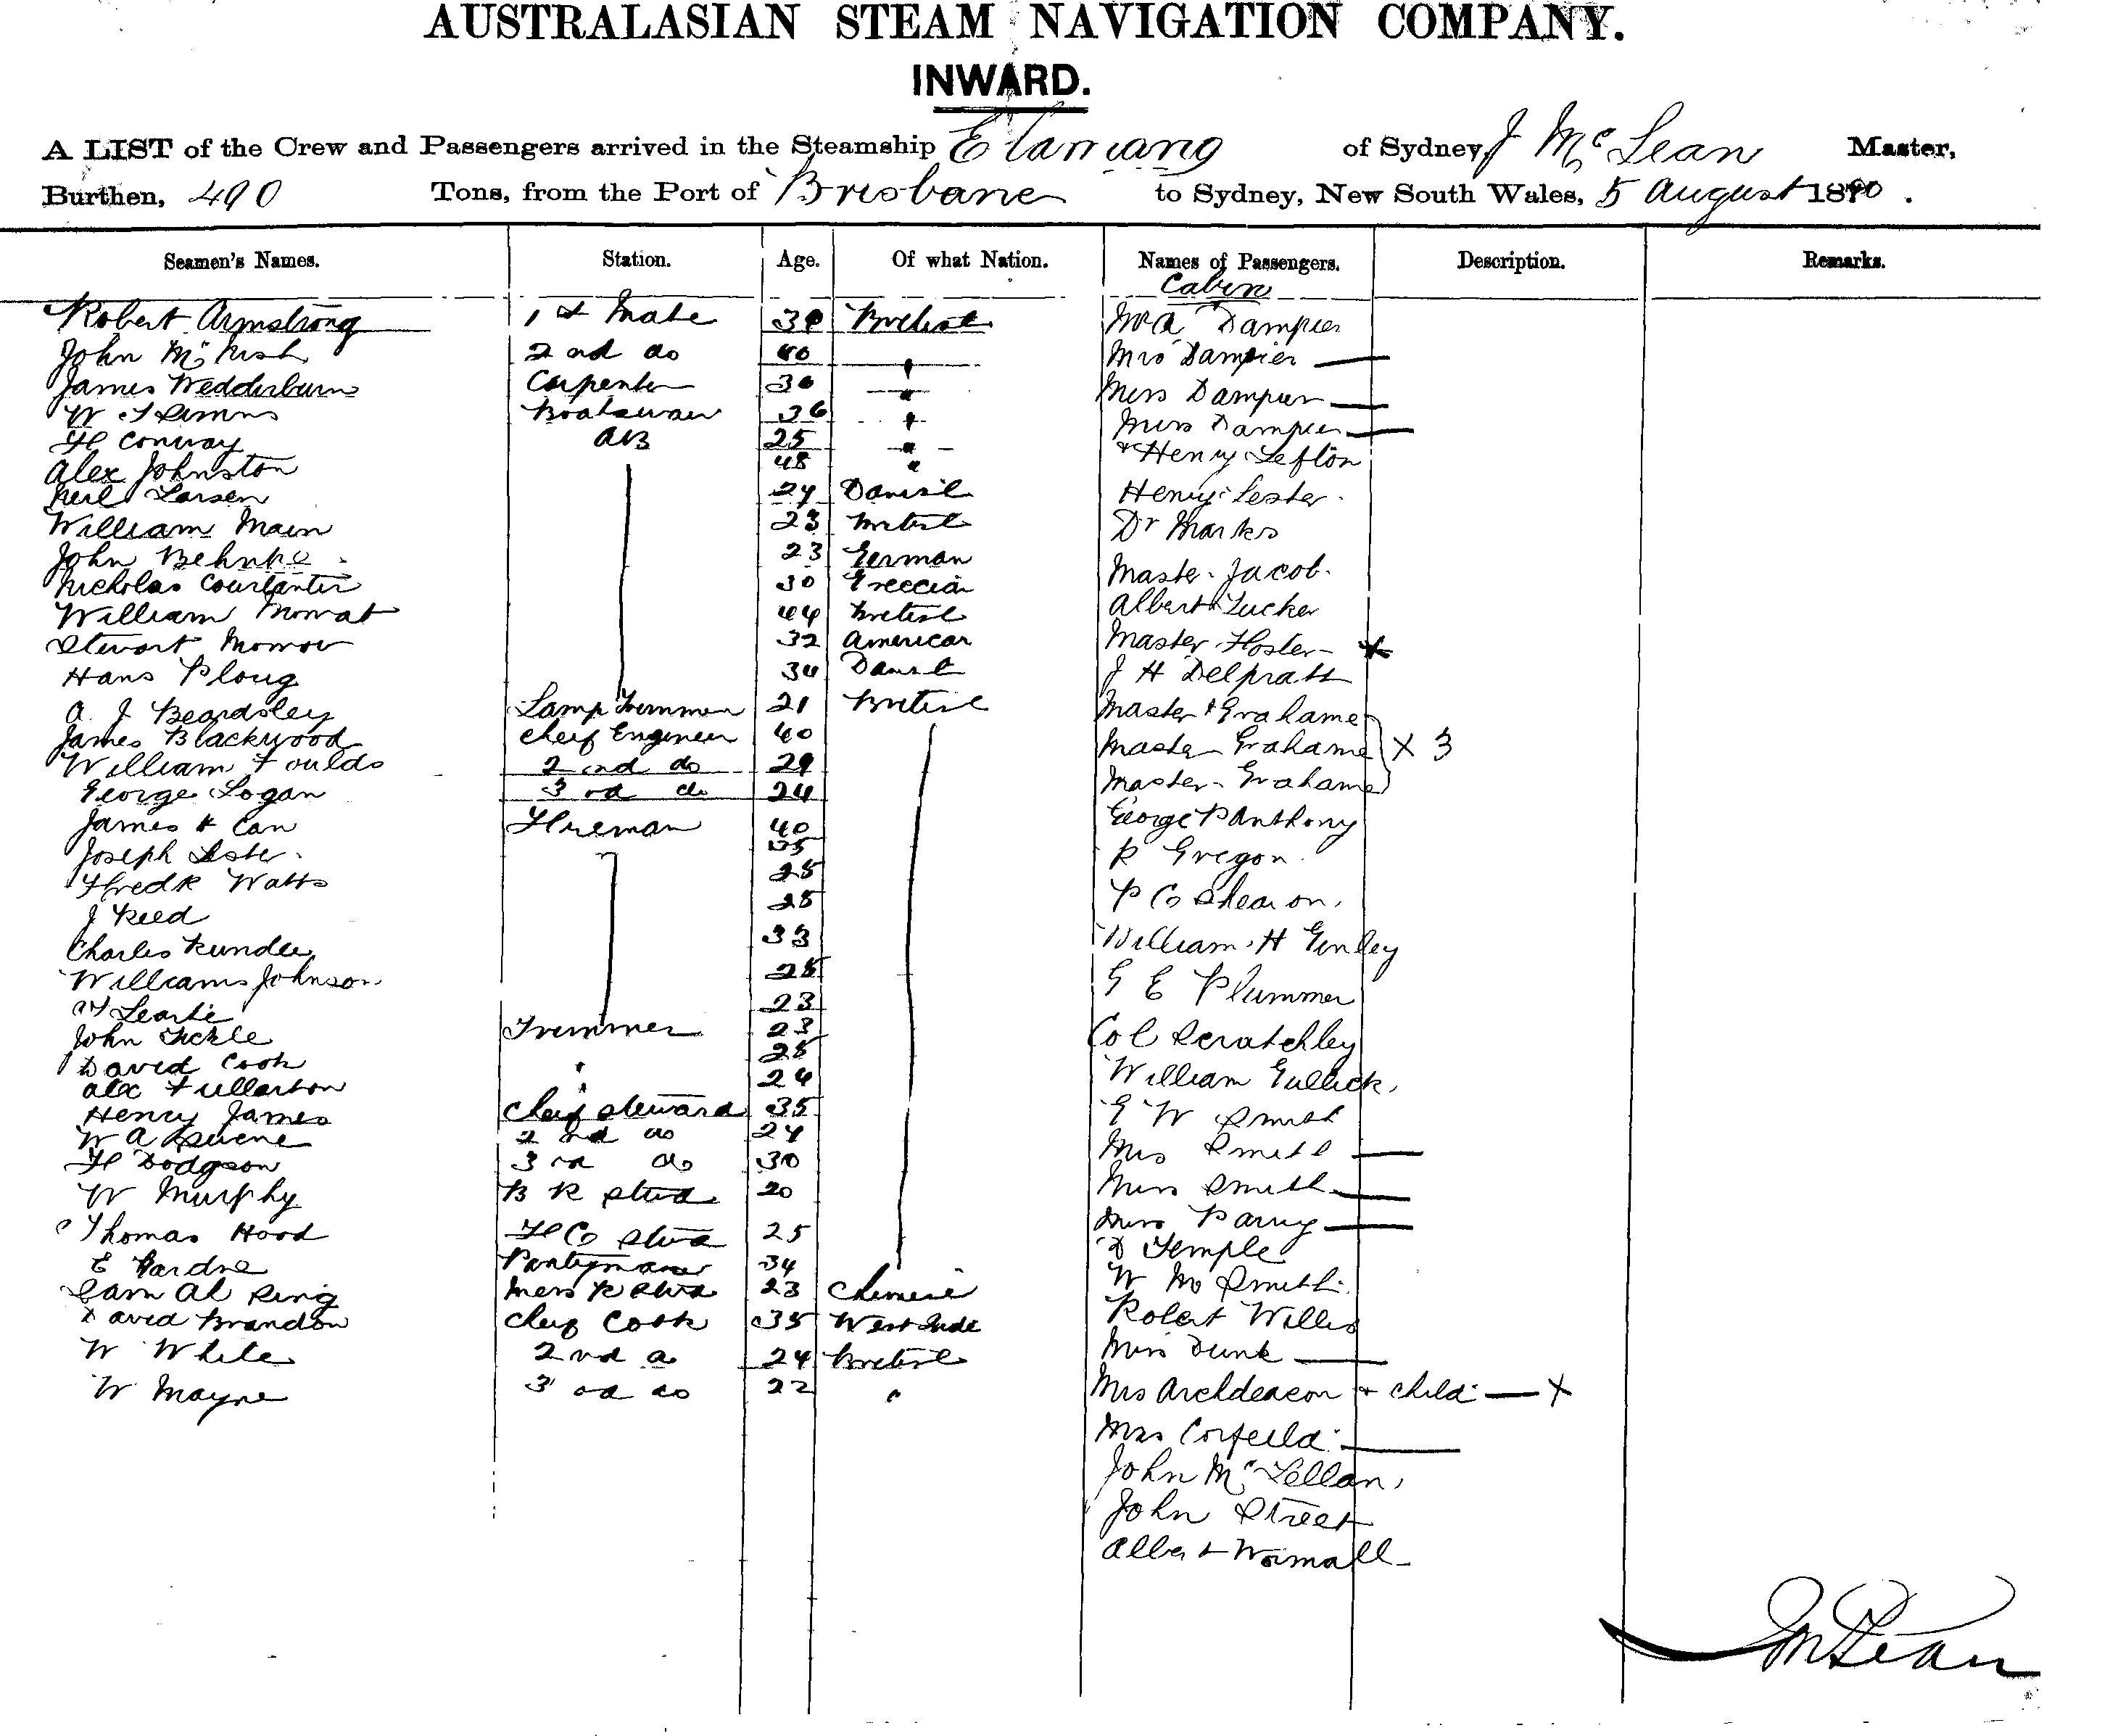 AUSTRALASIAN STEAM NAVIGATION COMPANY.
INWARD.
A LIST of the Crew and Passengers arrived in the Steamship Elamang of Sydney, J McLean Master,
Burthen, 490 Tons, from the Port of Brisbane to Sydney, New South Wales, 5 August 18
Seamen's Names. Station. Age. Of what Nation. Names of Passengers. Description. Remarks.
Cabin
Robert Armstrong 1st Mate British Dampier
John 2nd do 40 " Mrs Dampier —
James Wedderburn Carpenter 30 " Miss Dampier —
W Boatswain 36 " Miss Dampier —
H Conway AB 25 " Henry
Alex Johnston 48 "
Neil Larsen 24 Danish Henry Lester
William Main 23 British Dr Marks
John Behnke 23 German Master Jacob
Nicholas 30 Greecian Albert Tucker
William Mowat 44 British
Stewart 32 American Master Foster
Hans Ploug 34 Danish J H Delpratt
A. J Beardsley Lamp Trimmer 21 British Master Grahame
James Blackwood Cheif Engineer 40 Master Grahame X 3
William Foulds 2nd do 29 Master Grahame
George Logan 3rd do 24 George P Anthony
James Fireman 40
Joseph Lester 35 R
Fredk Watts 25
J Reed 25 P Co
Charles Rundle 33 William H
William Johnson 25 G E Plummer
23
John Tickle Trimmer 23 Col Scratchley
David Cook " 25 William Gullick
Alex Fullarton " 24
Henry James Cheif Steward 35 E W Smith
W A 2nd do 24 Mrs Smith —
H Dodgson 3rd do 30 Miss Smith —
W Murphy B R Stwd 20 Miss Parry —
Thomas Hood F C Stwd 25 Temple
E Pantryman 34 W M Smith
Sam Ah Ring Mess R Stwd 23 Chinese Robert Willis
David Brandon Cheif Cook 35 West Inde
W White 2nd do 24 British Miss —
W Mayne 3rd do 22 " Mrs Archdeacon & child — X
Mrs Corfeild —
John McLellan
John Street
Albert
McLean